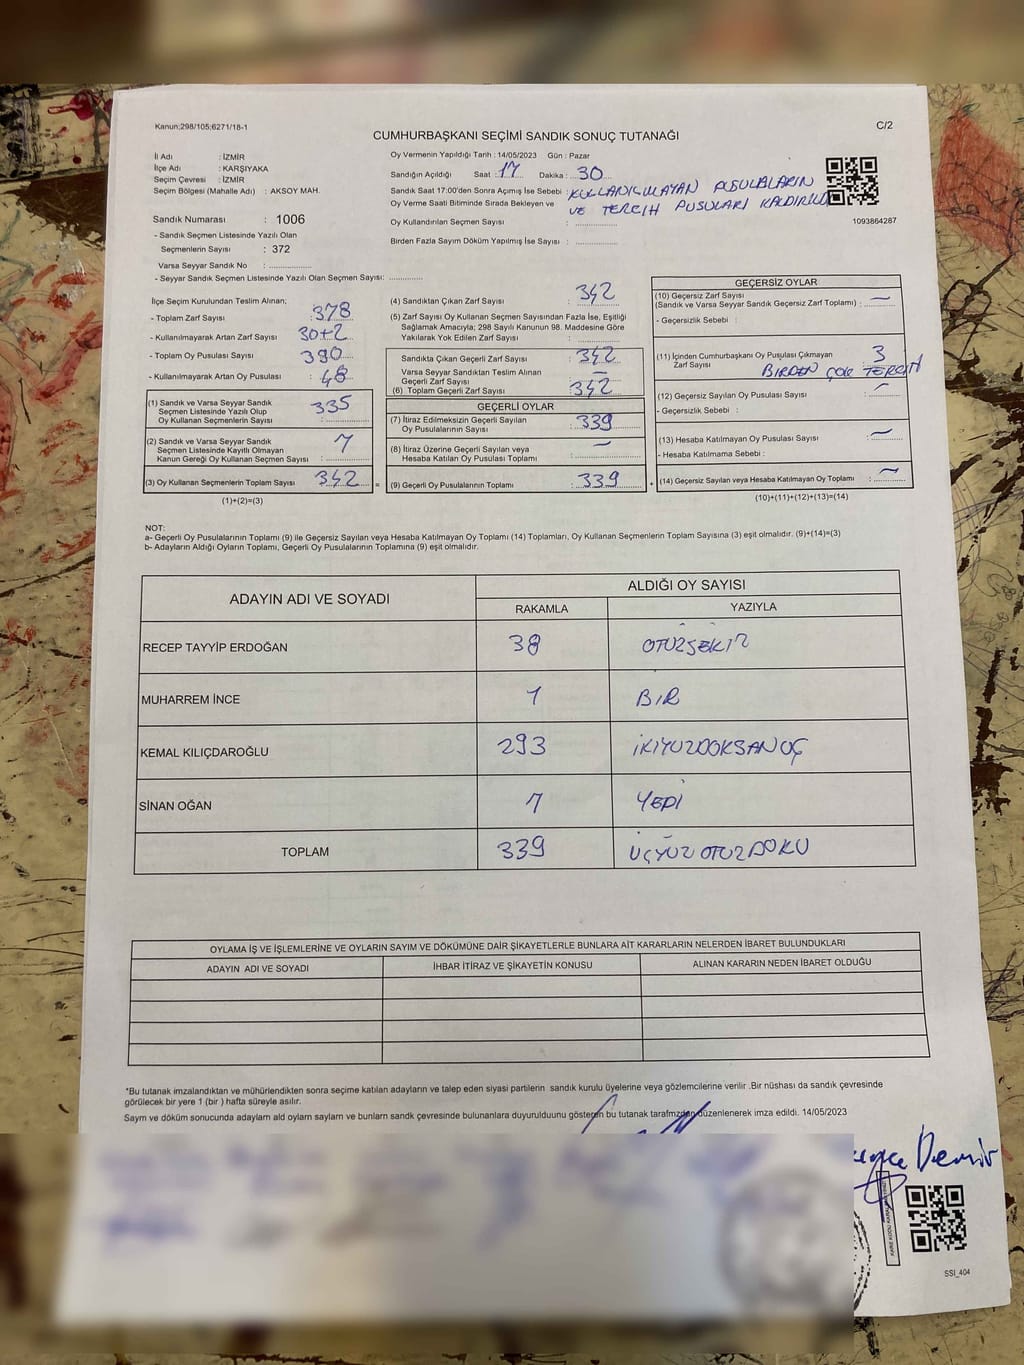 Kanun;298/105;6271/18-1
C/2
CUMHURBAŞKANI SEÇİMİ SANDIK SONUÇ TUTANAĞI
İl Adı : İZMİR
İlçe Adı : KARŞIYAKA
Seçim Çevresi : İZMİR
Seçim Bölgesi (Mahalle Adı) : AKSOY MAH.
Sandık Numarası : 1006
- Sandık Seçmen Listesinde Yazılı Olan
Seçmenlerin Sayısı : 372
Varsa Seyyar Sandık No : ................
- Seyyar Sandık Seçmen Listesinde Yazılı Olan Seçmen Sayısı: .............
Oy Vermenin Yapıldığı Tarih : 14/05/2023 Gün : Pazar
Sandığın Açıldığı Saat : 17 Dakika : 30
Sandık Saat 17:00'den Sonra Açımış İse Sebebi : KULLANILMAYAN PUSULALARIN
Oy Verme Saati Bitiminde Sırada Bekleyen ve VE TERCİH PUSULARI KALDIRILD
Oy Kullandırılan Seçmen Sayısı : ................
Birden Fazla Sayım Döküm Yapılmış İse Sayısı : ................
1093864287
İlçe Seçim Kurulundan Teslim Alınan;
- Toplam Zarf Sayısı : 378
- Kullanılmayarak Artan Zarf Sayısı : 30+2
- Toplam Oy Pusulası Sayısı : 390
- Kullanılmayarak Artan Oy Pusulası : 48
(1) Sandık ve Varsa Seyyar Sandık
Seçmen Listesinde Yazılı Olup
Oy Kullanan Seçmenlerin Sayısı : 335
(2) Sandık ve Varsa Seyyar Sandık
Seçmen Listesinde Kayıtlı Olmayan
Kanun Gereği Oy Kullanan Seçmen Sayısı : 7
(3) Oy Kullanan Seçmenlerin Toplam Sayısı : 342 =
(1)+(2)=(3)
(4) Sandıktan Çıkan Zarf Sayısı : 342
(5) Zarf Sayısı Oy Kullanan Seçmen Sayısından Fazla İse, Eşitliği
Sağlamak Amacıyla; 298 Sayılı Kanunun 98. Maddesine Göre
Yakılarak Yok Edilen Zarf Sayısı : ................
Sandıkta Çıkan Geçerli Zarf Sayısı : 342
Varsa Seyyar Sandıktan Teslim Alınan
Geçerli Zarf Sayısı : –
(6) Toplam Geçerli Zarf Sayısı : 342
GEÇERLİ OYLAR
(7) İtiraz Edilmeksizin Geçerli Sayılan
Oy Pusulalarının Sayısı : 339
(8) İtiraz Üzerine Geçerli Sayılan veya
Hesaba Katılan Oy Pusulası Toplamı : –
(9) Geçerli Oy Pusulalarının Toplamı : 339 +
GEÇERSİZ OYLAR
(10) Geçersiz Zarf Sayısı
(Sandık ve Varsa Seyyar Sandık Geçersiz Zarf Toplamı) : –
- Geçersizlik Sebebi :
(11) İçinden Cumhurbaşkanı Oy Pusulası Çıkmayan
Zarf Sayısı : 3
BİRDEN ÇOK TERCİH
(12) Geçersiz Sayılan Oy Pusulası Sayısı : –
- Geçersizlik Sebebi :
(13) Hesaba Katılmayan Oy Pusulası Sayısı : –
- Hesaba Katılmama Sebebi :
(14) Geçersiz Sayılan veya Hesaba Katılmayan Oy Toplamı : –
(10)+(11)+(12)+(13)=(14)
NOT:
a- Geçerli Oy Pusulalarının Toplamı (9) ile Geçersiz Sayılan veya Hesaba Katılmayan Oy Toplamı (14) Toplamları, Oy Kullanan Seçmenlerin Toplam Sayısına (3) eşit olmalıdır. (9)+(14)=(3)
b- Adayların Aldığı Oyların Toplamı, Geçerli Oy Pusulalarının Toplamına (9) eşit olmalıdır.
ADAYIN ADI VE SOYADI
ALDIĞI OY SAYISI
RAKAMLA YAZIYLA
RECEP TAYYİP ERDOĞAN 38 OTUZSEKİZ
MUHARREM İNCE 1 BİR
KEMAL KILIÇDAROĞLU 293 İKİYÜZDOKSANÜÇ
SİNAN OĞAN 7 YEDİ
TOPLAM 339 ÜÇYÜZOTUZDOKU
OYLAMA İŞ VE İŞLEMLERİNE VE OYLARIN SAYIM VE DÖKÜMÜNE DAİR ŞİKAYETLERLE BUNLARA AİT KARARLARIN NELERDEN İBARET BULUNDUKLARI
ADAYIN ADI VE SOYADI İHBAR İTİRAZ VE ŞİKAYETİN KONUSU ALINAN KARARIN NEDEN İBARET OLDUĞU
*Bu tutanak imzalandıktan ve mühürlendikten sonra seçime katılan adayların ve talep eden siyasi partilerin sandık kurulu üyelerine veya gözlemcilerine verilir .Bir nüshası da sandık çevresinde
görülecek bir yere 1 (bir ) hafta süreyle asılır.
Sayım ve döküm sonucunda adaylarn ald oylarn saylarn ve bunlarn sandk çevresinde bulunanlara duyurulduunu gösteren bu tutanak tarafmzdan düzenlenerek imza edildi. 14/05/2023
Demir
SSI_404